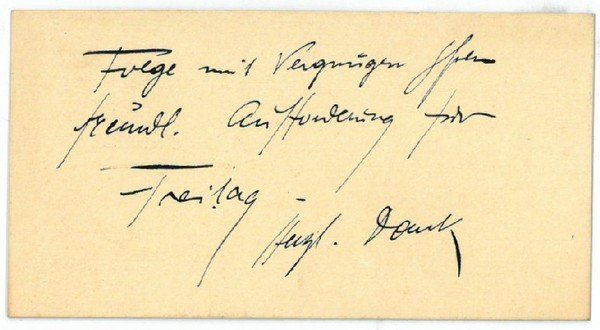 Folge mit Vergnügen Ihrer
freundl. Aufforderung für
Freitag –
Herzl. Dank